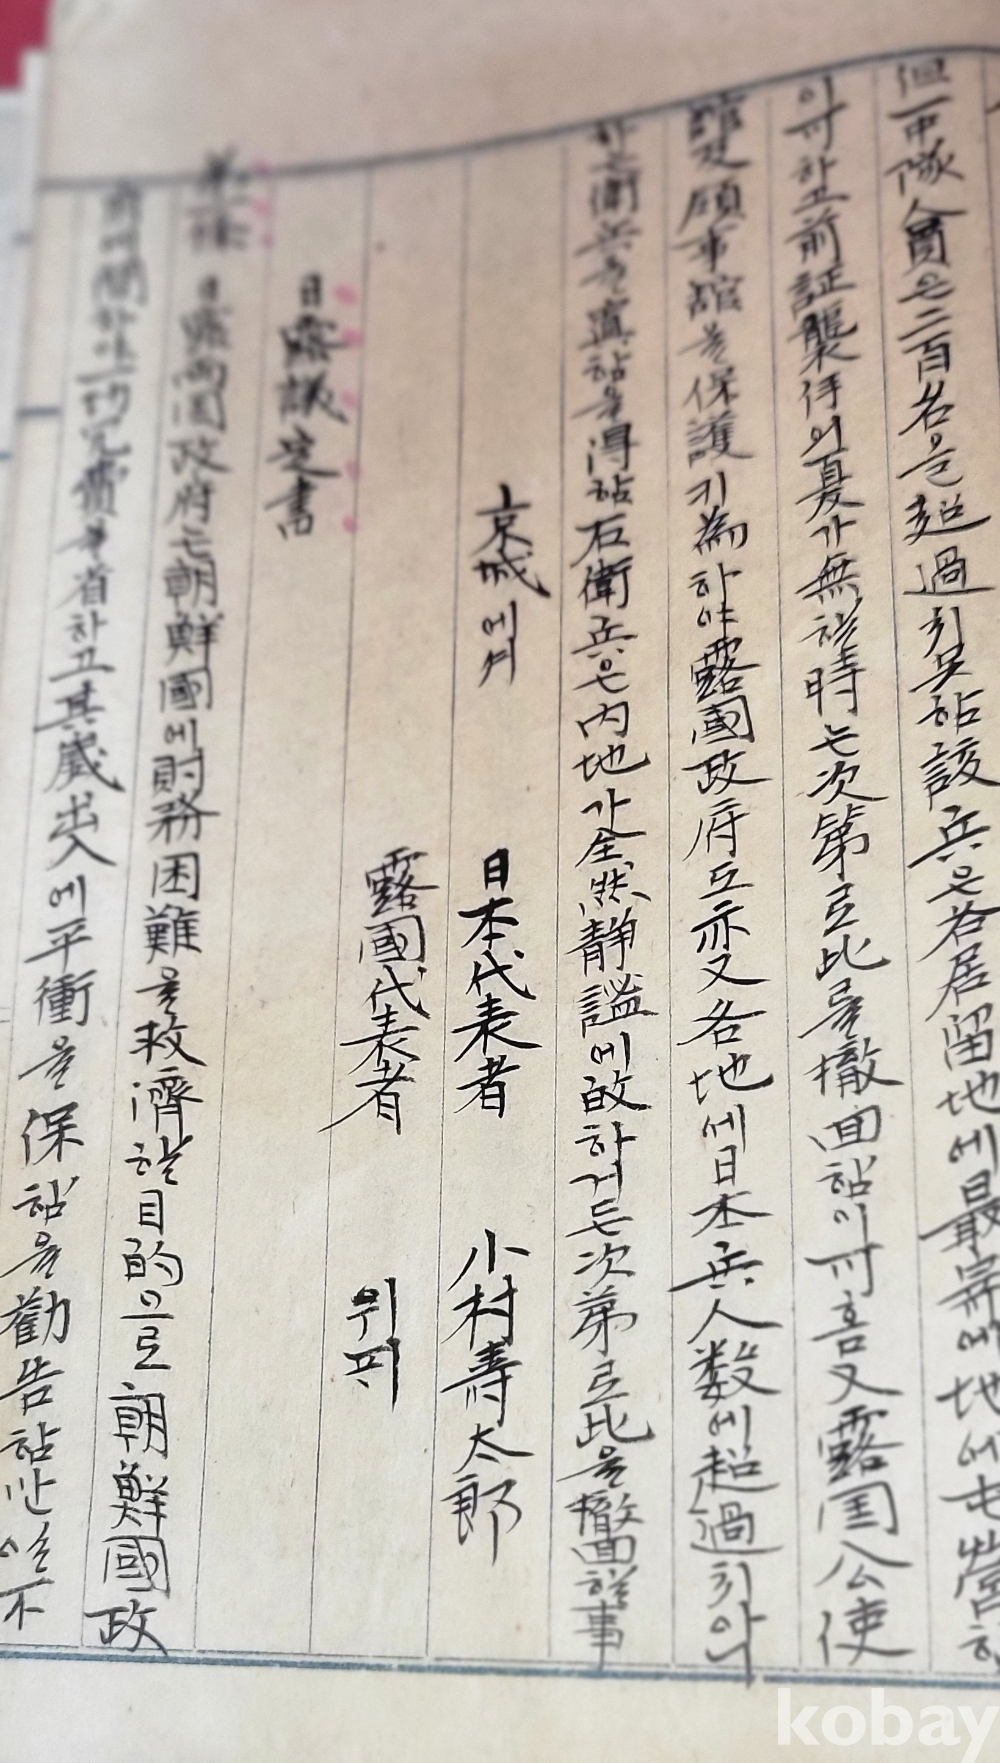 但一中隊人員은二百名을超過치못함該兵은各居留地에最寄에地에屯營하
이可하고前証襲侍의夏가無할時는次第로此를撤回함이可홈又露国公使
館及領事館을保護키為하야露國政府도亦又各地에日本兵人数에超過치아니
하는衛兵을置함을得함右衛兵은內地가全然静謐에故하거든次第로此을撤回할事
京城에셔 日本代表者 小村壽太郎
露國代表者 위피
日露議定書
第一條 日露兩国政府는朝鮮國에財務困難을救濟할目的으로朝鮮國政
府에閒하야一切冗費를省하고其歲出入에平衝을保함을勸告함만일不
kobay